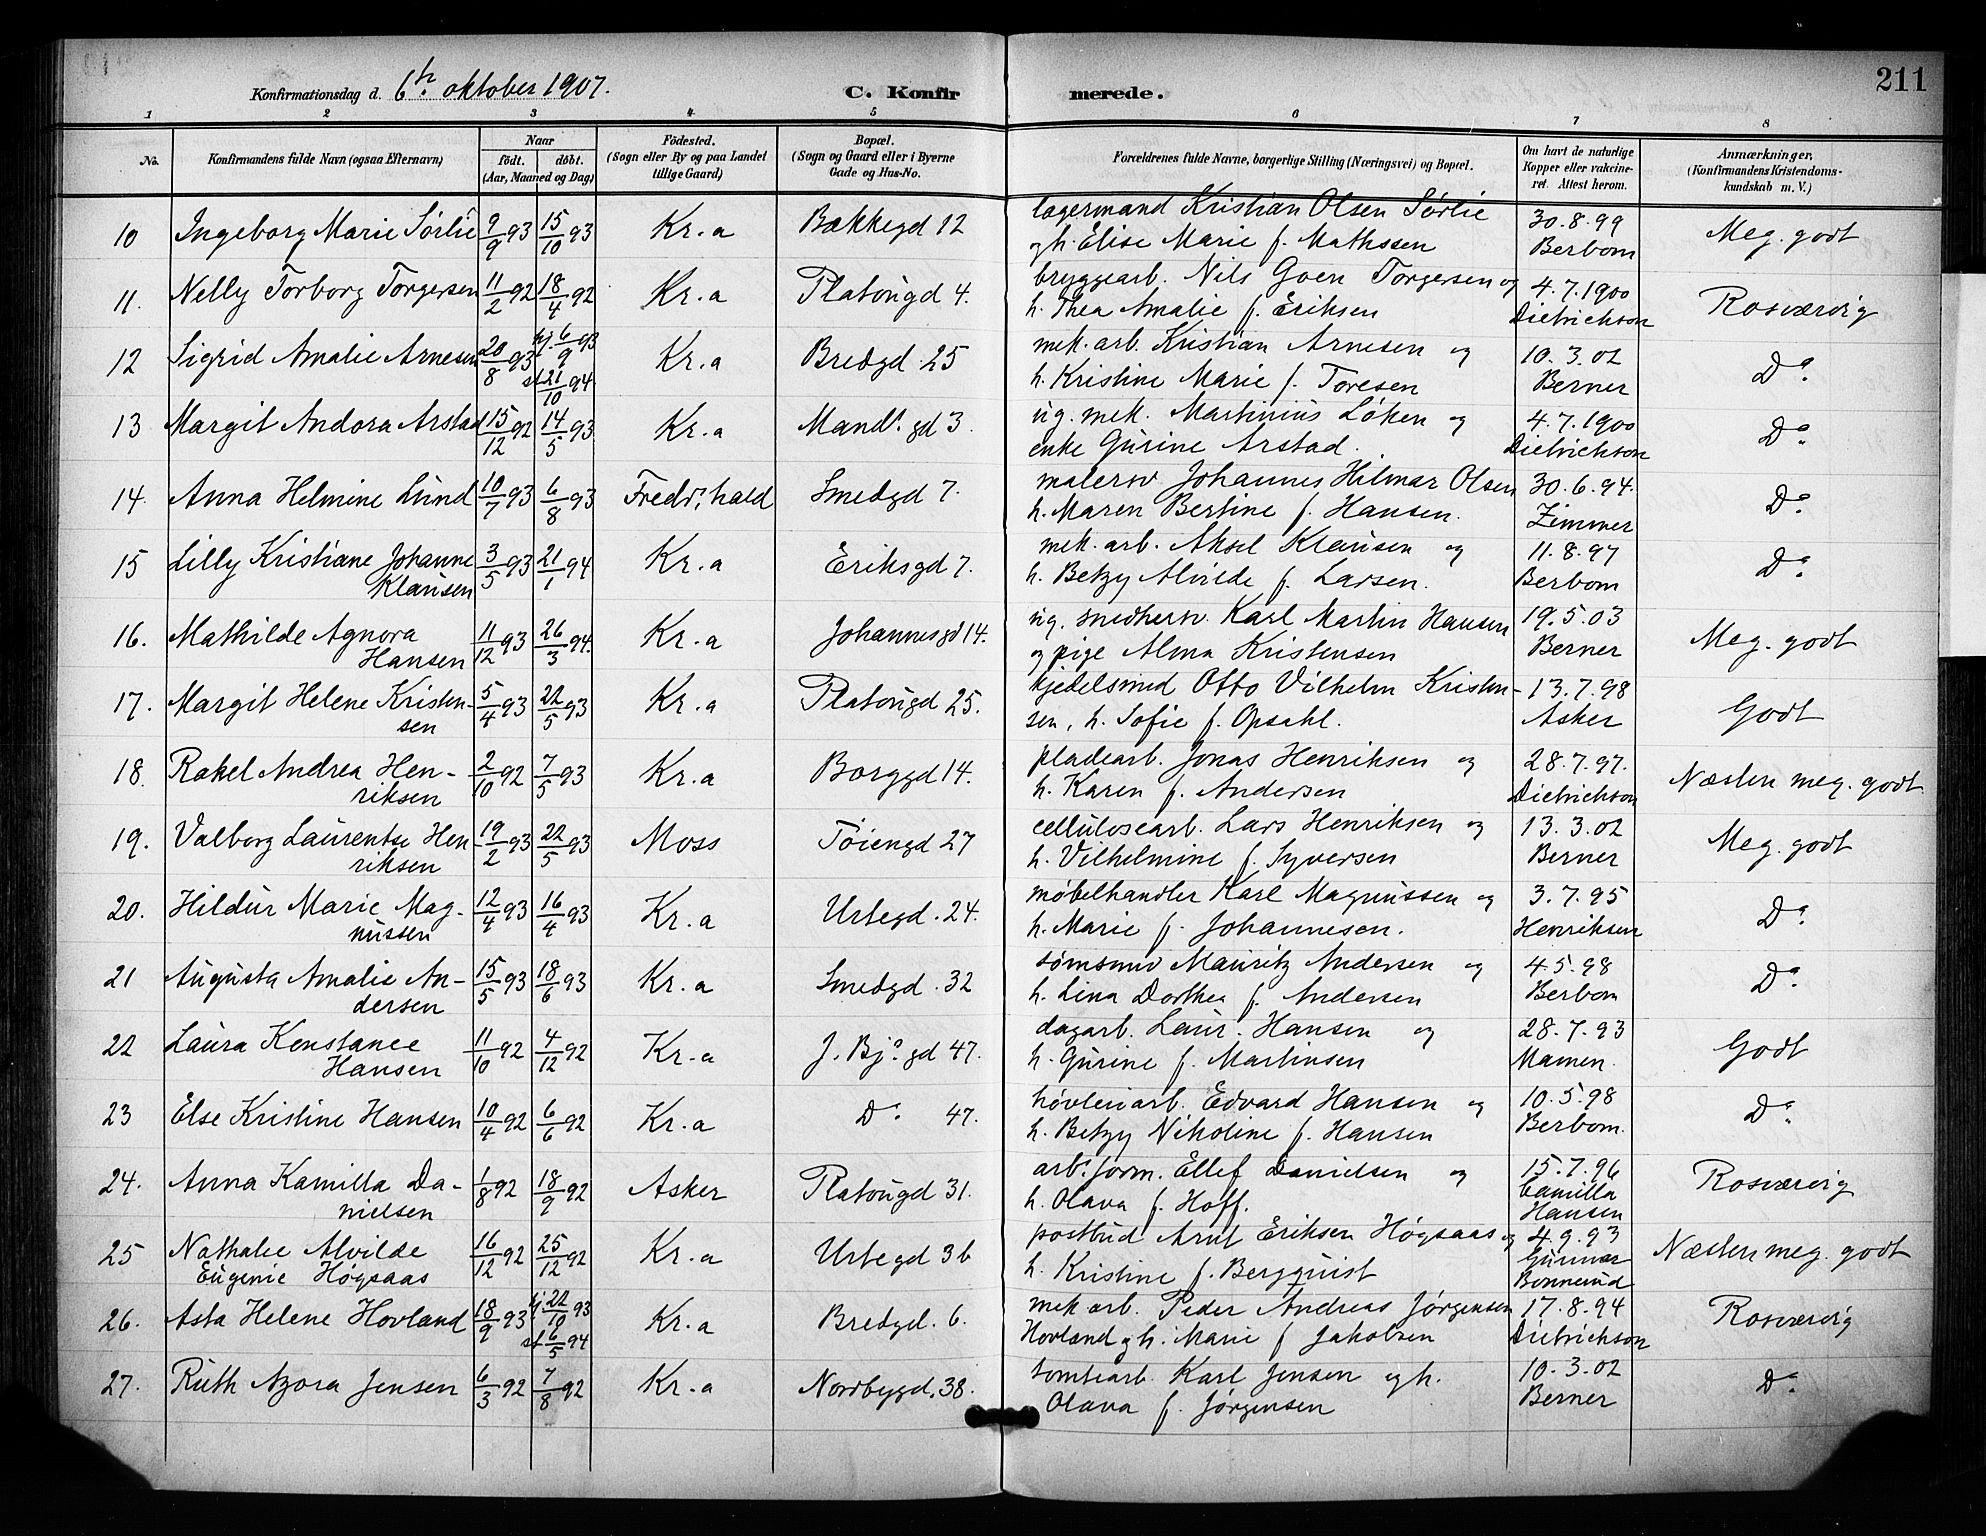 Konfirmationsdag d. 6te oktober 1907.
C. Konfir merede.
211
1 2 3 4 5 6 7 8
No. Konfirmandens fulde Navn (ogsaa Efternavn) Naar født. døbt. (Aar, Maaned og Dag) Födested. (Sogn eller By og paa Landet tillige Gaard) Bopæl. (Sogn og Gaard eller i Byerne Gade og Hus-No. Forældrenes fulde Navne, borgerlige Stilling (Næringsvei) og Bopæl. Om havt de naturlige Kopper eller vakcineret. Attest herom. Anmærkninger. (Konfirmandens Kristendomskundskab m. V.)
10 Ingeborg Marie Sørlie 9/9 93 15/10 93 Kr.a Bækkegd 12 lagermand Kristian Olsen Sørlie 30.8.99 Meg. godt
og h. Elise Marie f. Mathssen Berbom
11. Nelly Torborg Torgersen 11/2 92 18/4 92 Kr.a Platougd 4. bryggearb. Nils Goen Torgersen og 4.7.1900 Rosværdig
h. Thea Amalie f. Eriksen Dietrichson
12 Sigrid Amalie Arnesen 20/8 93 hj. 6/9 93 st 21/10 94 Kr.a Bredgd. 25 mek. arb. Kristian Arnesen og 10.3.02 Do.
h. Kristine Marie f. Toresen Berner
13 Margit Andora Arstad 15/12 92 14/5 93 Kr.a Mands gd 3. ug. mek. Martinius Løken og 4.7.1900 Do.
enke Gurine Arstad. Dietrichson
14. Anna Helmine Lund 10/7 93 6/8 93 Fredr.hald Smedgd 7. malersv Johannes Hilmar Olsen 30.6.94. Do.
h. Maren Bertine f. Hansen. Zimmer
15 Lilly Kristiane Johanne 3/5 93 21/1 94 Kr.a Eriksgd 7. mek. arb. Aksel Klausen og 11.8.97 Do.
Klausen h. Betzy Alvilde f. Larsen. Berbom
16. Mathilde Agnora 11/12 93 26/3 94. Kr.a Johannesgd 14. ug. smedsersv. Karl Martin Hansen 19.5.03 Meg. godt
Hansen og pige Alma Kristensen Berner
17. Margit Helene Kristen- 5/4 93 22/5 93 Kr.a Platougd 25. kjedelsmed Otto Vilhelm Kristen- 13.7.98 Godt
sen sen, h. Sofie f. Opsahl. Asker
18. Rakel Andrea Hen- 2/10 92 7/5 93 Kr.a Borggd 14. pladearb. Jonas Henriksen og 28.7.97. Næsten meg. godt
riksen h. Karen f. Andersen Dietrichson
19. Valborg Laurentse Hen 19/2 93 22/5 93 Moss Tøiengd 27 cellulosearb. Lars Henriksen og 13.3.02 Meg. godt
riksen h. Vilhelmine f. Syversen Berner
20. Hildur Marie Mag- 12/4 93 16/4 93 Kr.a Urtegd. 24. møbelhandler Karl Magnussen og 3.7.95 Do.
nussen h. Marie f. Johannesen. Henriksen
21 Augusta Amalie An- 15/5 93 18/6 93 Kr.a Smedgd. 32 Mauritz Andersen og 4.5.98 Do.
dersen h. Lina Dorthea f. Andersen Berbom
22 Laura Konstance 11/10 92 4/12 92 Kr.a J. Bj.s gd 47. dagarb. Laur. Hansen og 28.7.93 Godt
Hansen h. Gurine f. Martinsen Mamen.
23 Else Kristine Hansen 10/4 92 6/6 92 Kr.a Do. 47. høvleriarb. Edvard Hansen og 10.5.98 Do.
h. Betzy Nikoline f. Hansen Berbom.
24. Anna Kamilla Da- 1/8 92 18/9 92 Asker Platougd 31. arb.form. Ellef Danielsen og 15.7.96 Rosværdig
nielsen h. Olava f. Hoff. Camilla Hansen
25 Nathalie Alvilde 16/12 92 25/12 92 Kr.a Urtegd 36 postbud Arnt Eriksen Høgsaas og 4.9.93 Næsten meg. godt
Eugenie Høgsaas h. Kristine f. Bergquist Gunnar
26. Asta Helene Hovland 18/9 93 hj. 22/10 93 st 6/5 94 Kr.a Bredgd. 6. mek arb. Peder Andreas Jørgensen 17.8.94 Rosværdig
Hovland og h. Marie f Jakobsen Dietrichson
27. Ruth Azora Jensen 6/3 92 7/8 92 Kr.a Nordbygd. 38. tomtearb. Karl Jensen og h. 10.3.02 Do.
Olava f. Jørgensen Berner